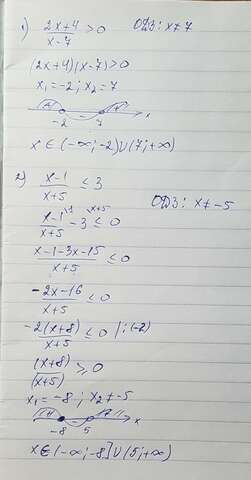 1) (2x+4)/(x-7) > 0 ОДЗ: x≠7
(2x+4)(x-7)>0
x₁=-2; x₂=7
+ - + x
-2 7
x∈(-∞;-2)∪(7;+∞)
2) (x-1)/(x+5) ≤ 3
ОДЗ: x≠-5
(x-1)/(x+5) - 3 ≤ 0
(x-1-3x-15)/(x+5) ≤ 0
(-2x-16)/(x+5) ≤ 0
-2(x+8)/(x+5) ≤ 0 |:(-2)
(x+8)/(x+5) ≥ 0
x₁=-8; x₂≠-5
x
-8 5
x∈(-∞;-8]∪(5;+∞)